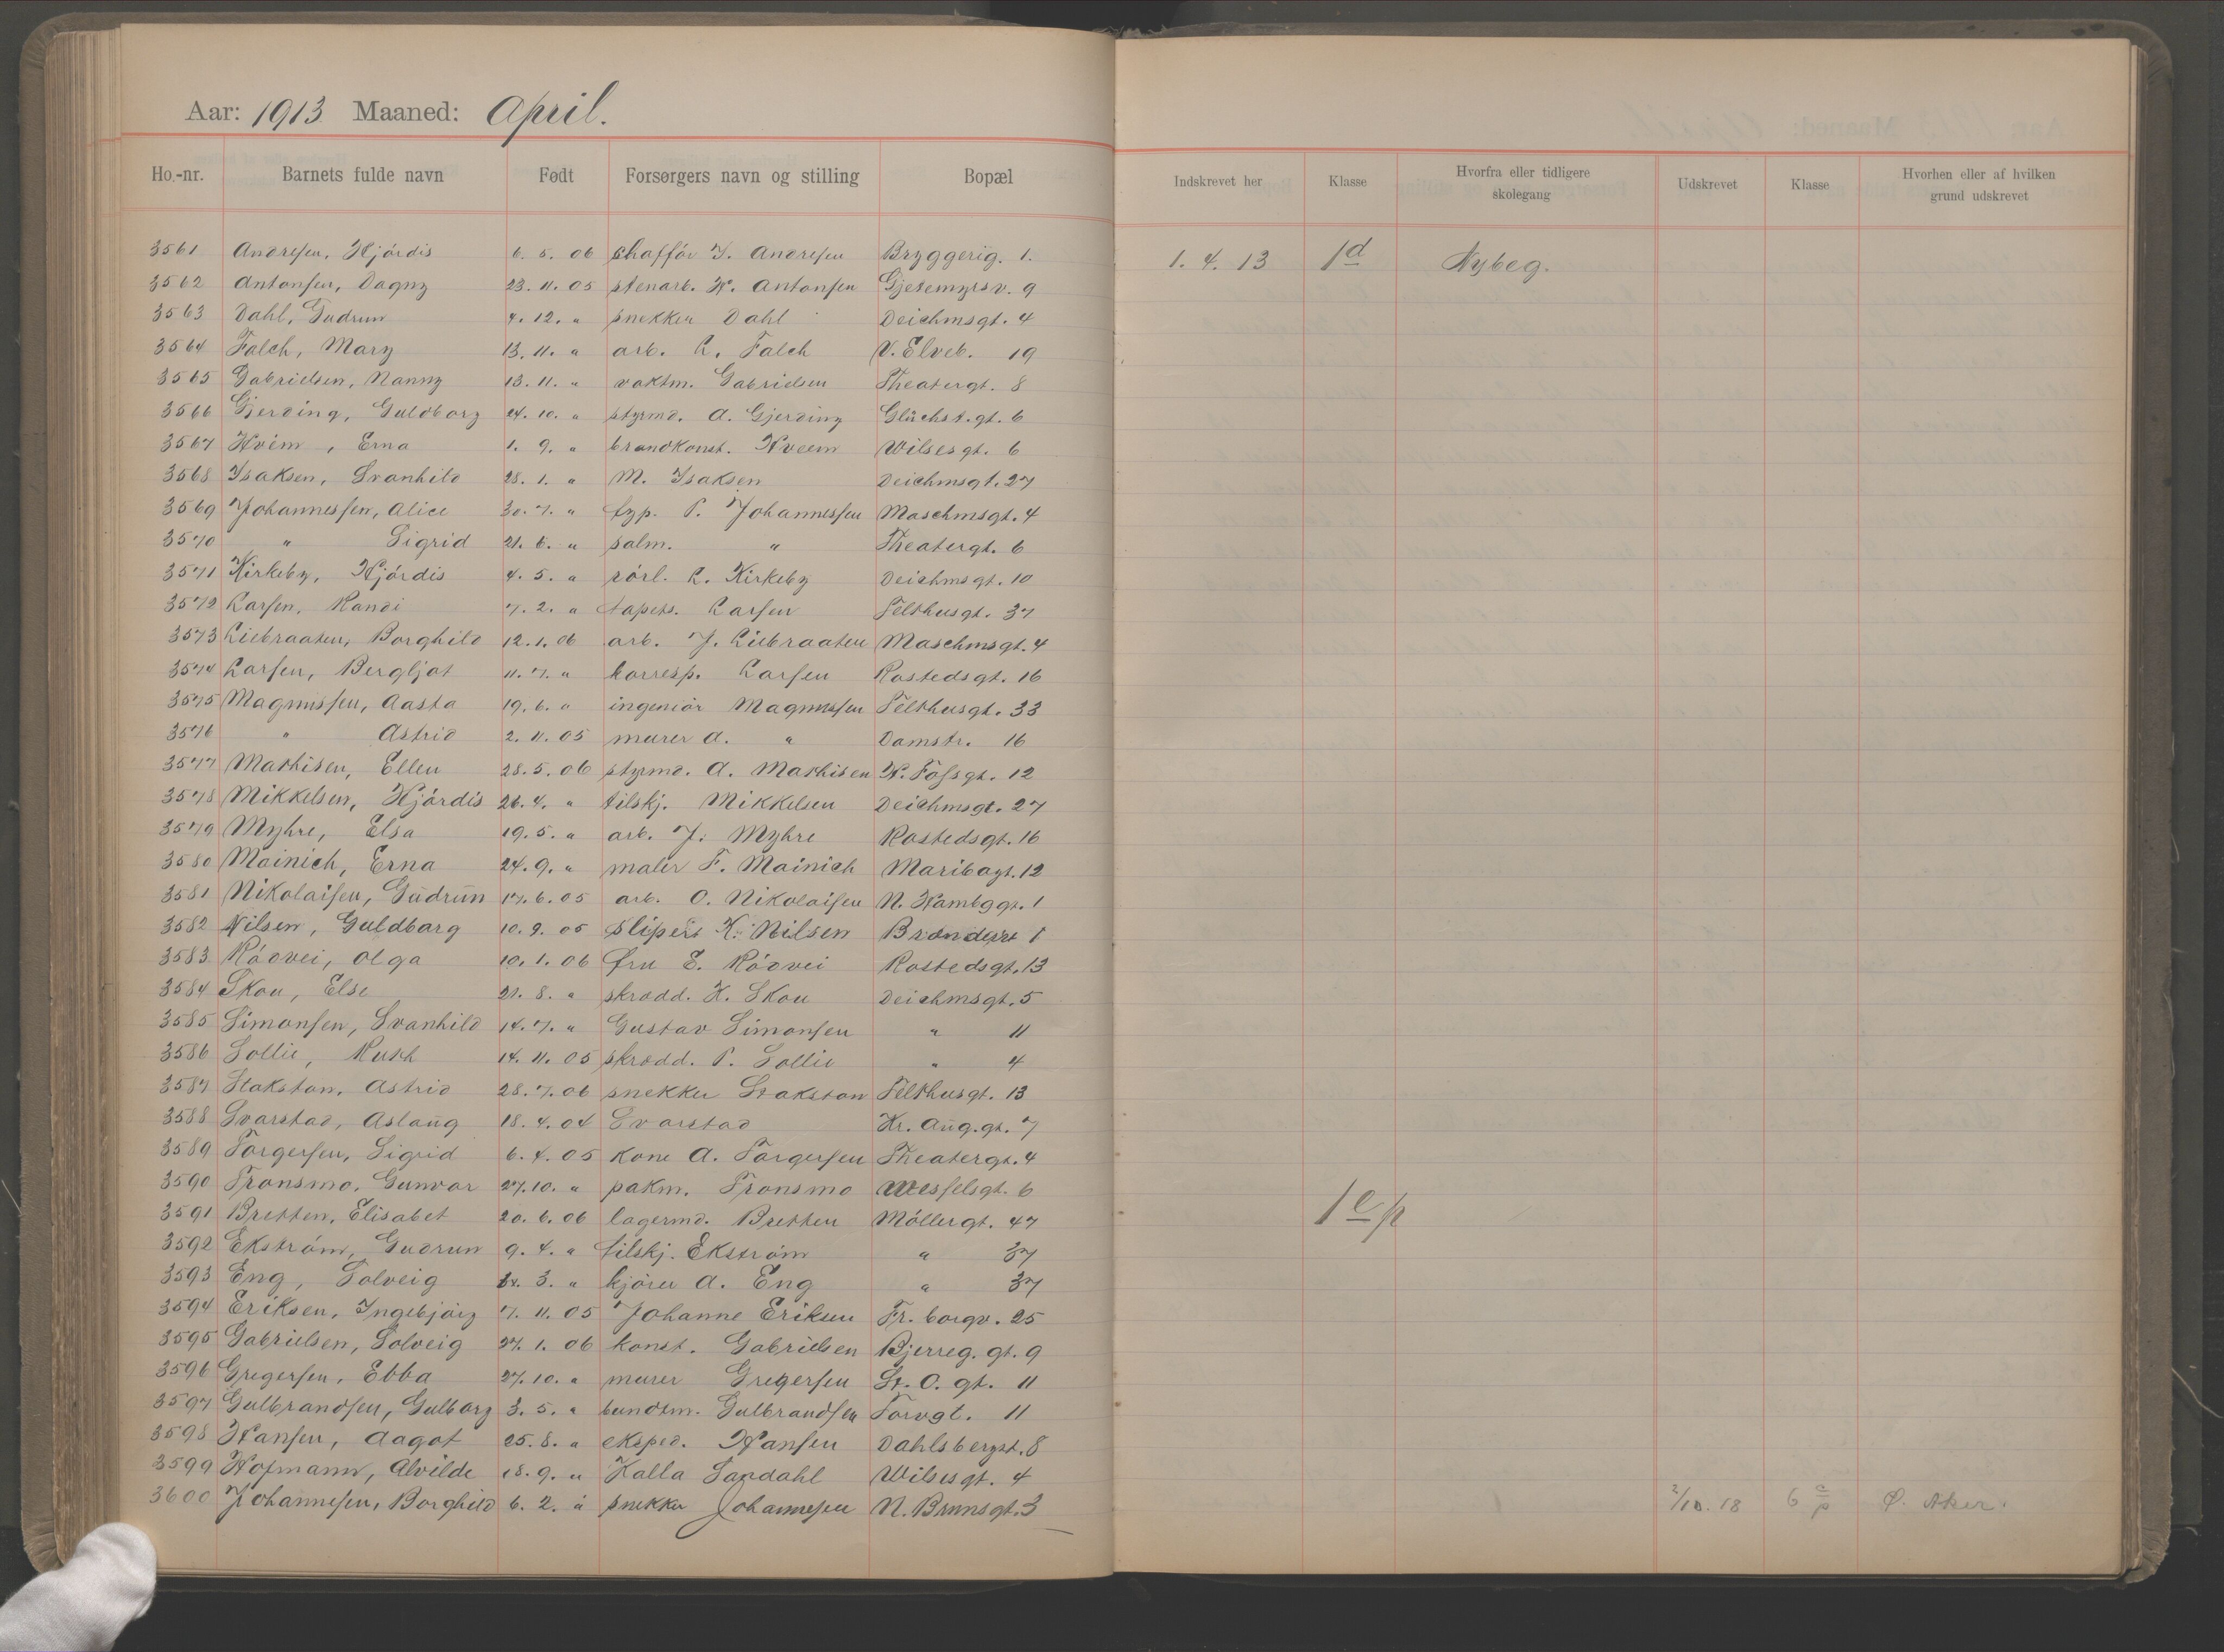 Aar: 1913 Maaned: April.
Ho.-nr. Barnets fulde navn Født Forsørgers navn og stilling Bopæl Indskrevet her Klasse Hvorfra eller tidligere skolegang Udskrevet Klasse Hvorhen eller af hvilken grund udskrevet
3561 Andresen, Hjørdis 6. 5. 06 chaffør J. Andresen Bryggerig. 1. 1. 4. 13 1d Nybeg.
3562 Antonsen, Dagny 23. 11. 05 stenarb. H. Antonsen Gjetemyrsv. 9
3563 Dahl, Gudrun 4. 12. " snekker Dahl Deichmsgt. 4
3564 Falch, Mary 13. 11. " arb. L. Falch V. Elveb. 19
3565 Gabrielsen, Nanny 13. 11. " vaktm. Gabrielsen Theatergt. 8
3566 Gjerding, Guldborg 24. 10. " styrmd. A. Gjerding Glückst.gt. 6
3567 Hvém, Erna 1. 9. " brandkonst. Hveem Wilsesgt. 6
3568 Isaksen, Svanhild 28. 1. " M. Isaksen Deichmsgt. 27
3569 Johannessen, Alice 30. 7. " typ. P. Johannessen Maschmsgt. 4
3570 " Sigrid 21. 6. " salm. " Theatergt. 6
3571 Kirkeby, Hjørdis 4. 5. " rörl. L. Kirkeby Deichmsgt. 10
3572 Larsen, Randi 7. 2. " tapets. Larsen Felthusgt. 37
3573 Liebraaten, Borghild 12. 1. 06 arb. J. Liebraaten Maschmsgt. 4
3574 Larsen, Bergljot 11. 7. " korresp. Larsen Rostedsgt. 16
3575 Magnussen, Aasta 19. 6. " ingeniör Magnussen Felthusgt. 33
3576 " Astrid 2. 11. 05 murer A. " Damstr. 16
3577 Mathisen, Ellen 28. 5. 06 styrmd. A. Mathisen H. Fossgt. 12
3578 Mikkelsen, Hjørdis 26. 4. " tilskj. Mikkelsen Deichmsgt. 27
3579 Myhre, Elsa 19. 5. " arb. J. Myhre Rostedsgt. 16
3580 Mainich, Erna 24. 9. " maler F. Mainich Maribogt. 12
3581 Nikolaisen, Gudrun 17. 6. 05 arb. O. Nikolaisen N. Hambggt. 1
3582 Nilsen, Guldborg 10. 9. 05 Slipers K. Nilsen 1
3583 Rödvei, Olga 10. 1. 06 Fru E. Rödvei Rostedsgt. 13
3584 Skou, Else 21. 8. " skrædd. H. Skou Deichmsgt. 5
3585 Simonsen, Svanhild 14. 7. " Gustav Simonsen " 11
3586 Sollie, Ruth 14. 11. 05 skrædd. P. Sollie " 4
3587 Stakston, Astrid 28. 7. 06 snekker Stakston Felthusgt. 13
3588 Svarstad, Aslaug 18. 4. 04 Svarstad Kr. Aug.gt. 7
3589 Torgersen, Sigrid 6. 4. 05 Kone A. Torgersen Theatergt. 4
3590 Tronsmo, Gunvor 27. 10. " pakm. Tronsmo Wesselsgt. 6
3591 Bretten, Elisabet 20. 6. 06 lagermd. Bretten Möllergt. 47 1e p
3592 Ekström, Gudrun 9. 4. " tilskj. Ekström " 37
3593 Eng, Solveig 3. " kjörer A. Eng " 37
3594 Eriksen, Ingebjörg 7. 11. 05 Johanne Eriksen Fr. borgv. 25
3595 Gabrielsen, Solveig 27. 1. 06 konst. Gabrielsen Bjerreg. gt. 9
3596 Gregersen, Ebba 27. 10. " murer Gregersen St. O. gt. 11
3597 Gulbrandsen, Gulborg 3. 5. " bundtm. Gulbrandsen Torvgt. 11
3598 Hansen, Aagot 25. 8. " eksped. Hansen Dahlsbergst. 8
3599 Hofmann, Alvilde 18. 9. " Kalla Sandahl Wilsesgt. 4
3600 Johannesen, Borghild 6. 2. " snekker Johannesen N. Brunsgt. 3 2/10. 18 6 c/p Ø. Aker.